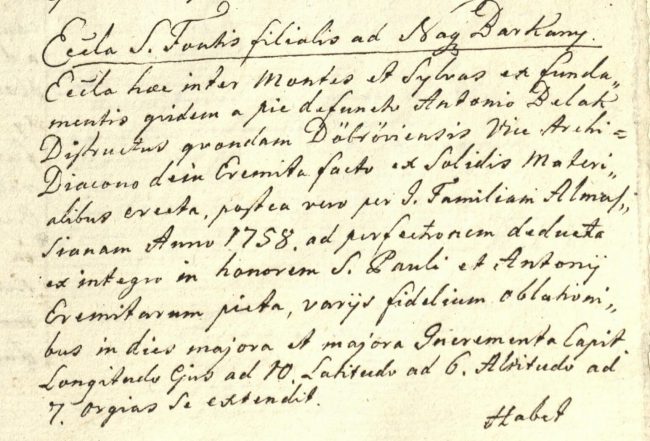 Eccła S. Fontis filialis ad Nag Barkany.
Eccła hæc inter Montes et Sylvas ex funda„
mentis quidem a pie defuncto Antonio Belak
Districtus quondam Döbröviensis Vice Archi=
Diacono dein Eremita facto ex Solidis Materi„
alibus erecta, postea vero per I. Familiam Almas„
sianam Anno 1758. ad perfectionem deducta
ex integro in honorem S. Pauli et Antonij
Eremitarum picta, varijs fidelium oblationi„
bus in dies majora et majora Incrementa Capit
Longitudo Ejus ad 10. Latitudo ad 6. Altitudo ad
7. orgias se extendit.
Habet